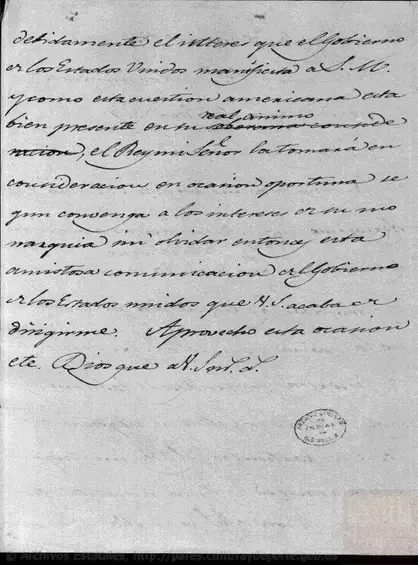 debidamente el interes que el Gobierno
de los Estados Unidos manifiesta a S. M.
y como esta cuestion americana esta
bien presente en su real animo
el Rey mi Señor la tomará en
consideracion en ocasion oportuna se
gun convenga a los intereses de su mo
narquia sin olvidar entonces esta
amistosa comunicacion del Gobierno
de los Estados unidos que V. S. acaba de
dirigirme. Aprovecho esta ocasion
etc. Dios que a V. S. ms. as.
ARCHIVO GENERAL
DE
INDIAS
SEVILLA